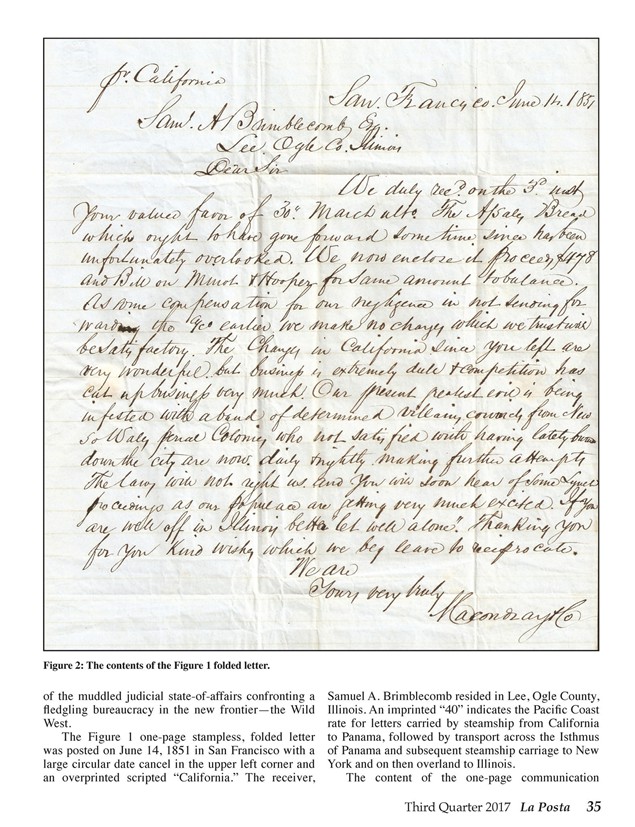 pr. California
San. Francisco. June 14. 1851
Saml. A Brimblecomb, Eq.
Lee. Ogle Co. Illinois
Dear Sir
We duly recd. on the 3d inst
Your valued favor of 30th March ulto. The Bread
which ought to have gone forward some time since has been
unfortunately overlooked. We now enclose it proceeds $478
and Bill on Minot & Hooper for same amount to balance.
As some compensation for our negligence in not sending for
warding the earlier we make no charges which we trust will
be satisfactory. The Changes in California since you left are
very wonderful. but business is extremely dull & competition has
cut up business very much. Our present greatest evil is being
infested with a band of determined villains, convicts from New
So Wales penal Colonies, who not satisfied with having lately burnt
down the city are now. daily & nightly making further attempts
The laws will not right us. and You will soon hear of some Lynch
proceedings as our populace are getting very much excited. If You
are well off in Illinois better let well alone. Thanking You
for You kind wishes which we beg leave to reciprocate.
We are
Yours very truly
Macondray & Co
Figure 2: The contents of the Figure 1 folded letter.
of the muddled judicial state-of-affairs confronting a
fledgling bureaucracy in the new frontier—the Wild
West.
The Figure 1 one-page stampless, folded letter
was posted on June 14, 1851 in San Francisco with a
large circular date cancel in the upper left corner and
an overprinted scripted “California.” The receiver,
Samuel A. Brimblecomb resided in Lee, Ogle County,
Illinois. An imprinted “40” indicates the Pacific Coast
rate for letters carried by steamship from California
to Panama, followed by transport across the Isthmus
of Panama and subsequent steamship carriage to New
York and on then overland to Illinois.
The content of the one-page communication
Third Quarter 2017 La Posta 35